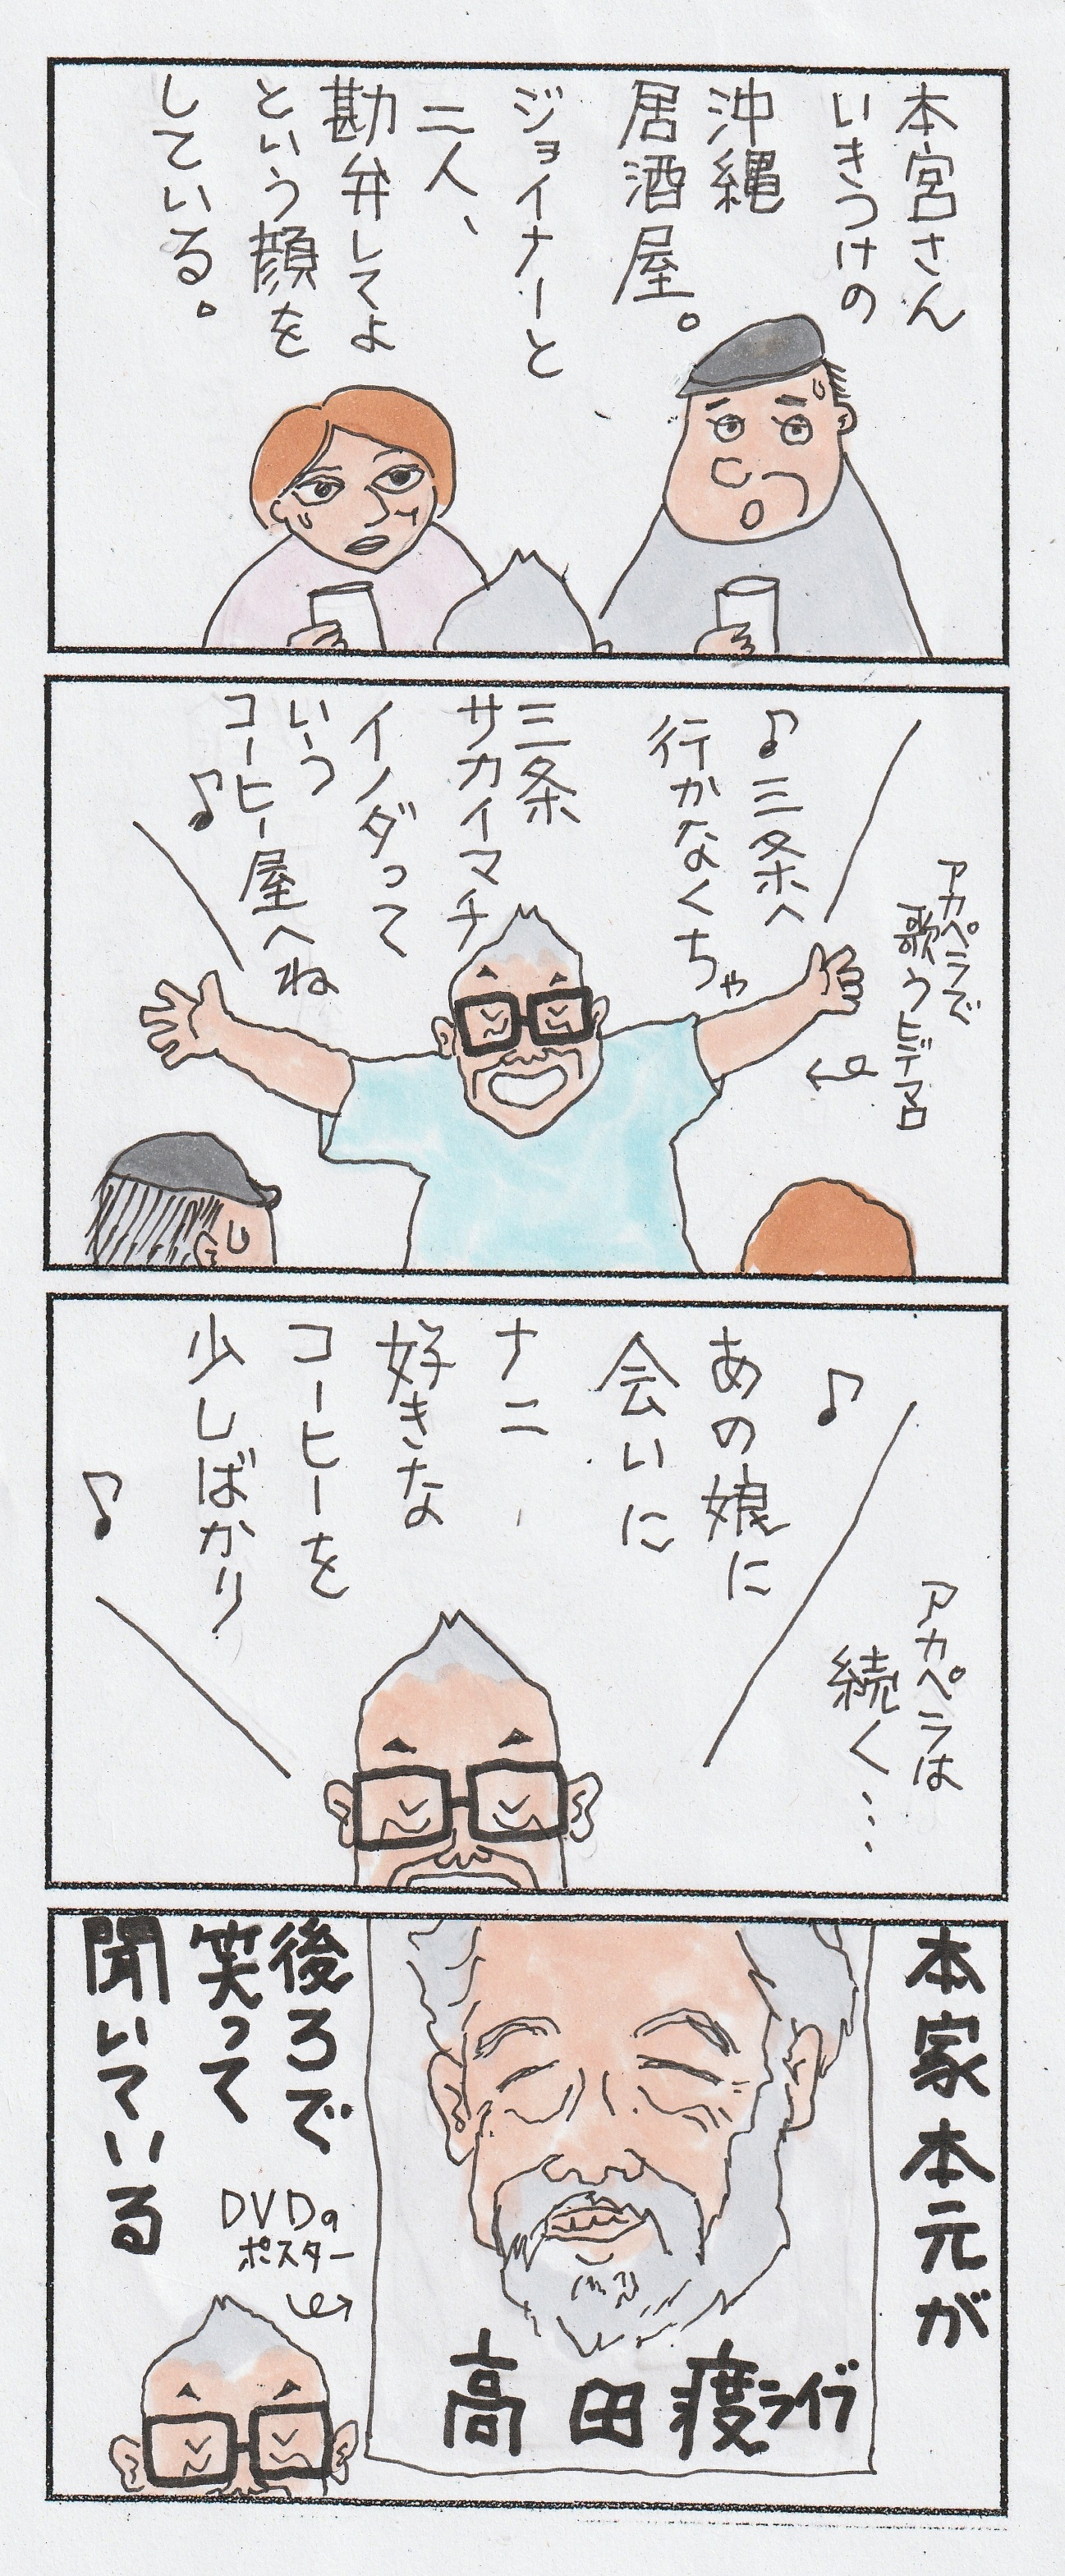 本宮さん
いきつけの
沖縄
居酒屋。
ジョイナーと
二人、
勘弁してよ
という顔を
している。
アカペラで
歌うヒデマロ
♪三条へ
行かなくちゃ
三条
サカイマチ
イノダって
いう
コーヒー屋へね
♪
アカペラは
続く…
♪
あの娘に
会いに
ナニ
好きな
コーヒーを
少しばかり
♪
本家本元が
高田渡ライブ
後ろで
笑って
聞いている
DVDの
ポスター